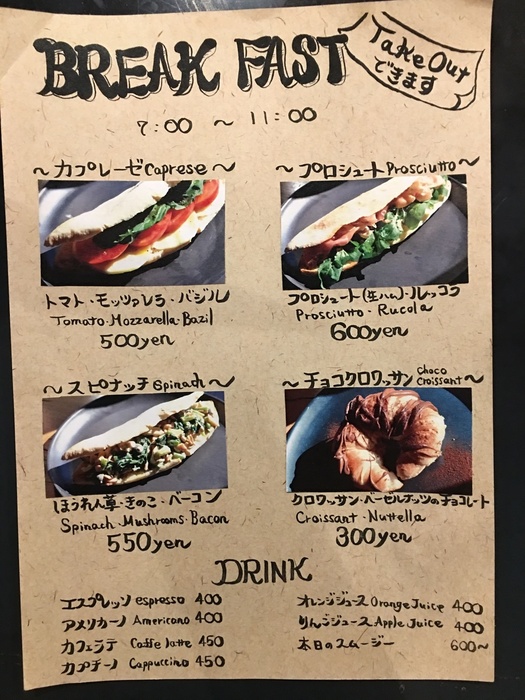 BREAK FAST
Take Out
できます
7:00 ~ 11:00
~ カプレーゼ Caprese ~
~ プロシュート Prosciutto ~
トマト・モッツァレラ・バジル
Tomato・Mozzarella・Bazil
500yen
プロシュート(生ハム)・ルッコラ
Prosciutto・Rucola
600yen
~ スピナッチ Spinach ~
~ チョコクロワッサン choco croissant ~
ほうれん草・きのこ・ベーコン
Spinach・Mushrooms・Bacon
550yen
クロワッサン・ヘーゼルナッツのチョコレート
Croissant・Nuttella
300yen
DRINK
エスプレッソ espresso 400
アメリカーノ Americano 400
カフェラテ Caffe latte 450
カプチーノ Cappuccino 450
オレンジジュース Orange Juice 400
りんごジュース Apple Juice 400
本日のスムージー 600~